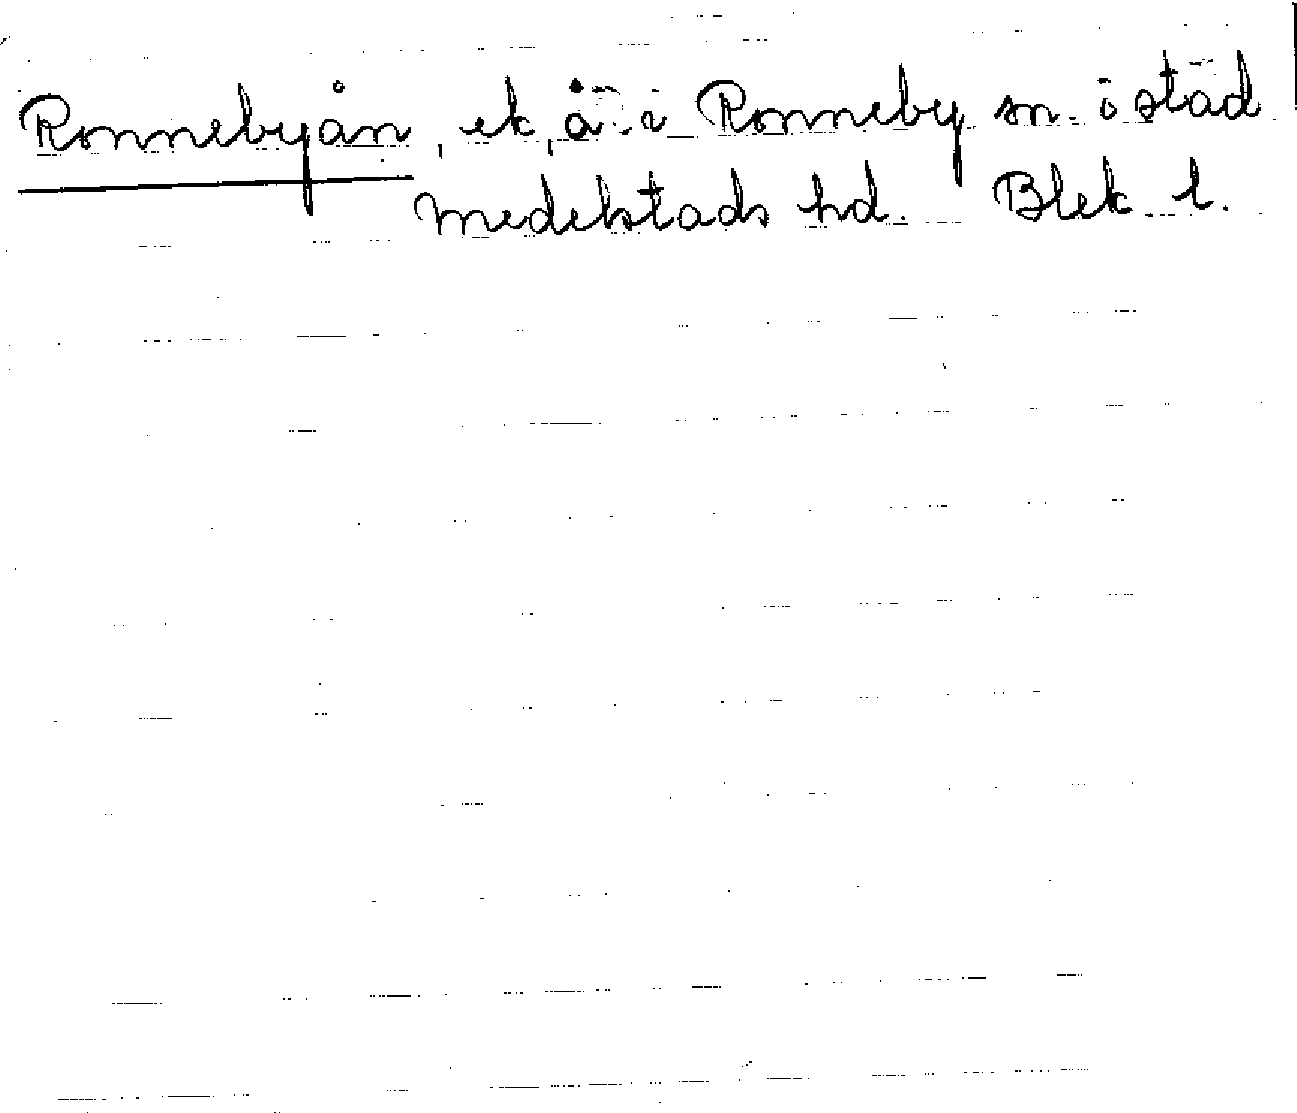 Ronnebyån, ek, å i Ronneby sn. o stad
Medelstads hd. Blek l.